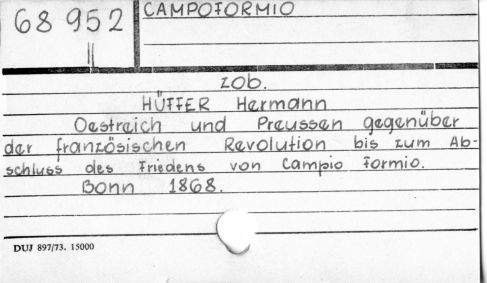 68952
II
CAMPOFORMIO
zob.
HÜFFER Hermann
Oestreich und Preussen gegenüber
der französischen Revolution bis zum Ab-
schluss des Friedens von Campio Formio.
Bonn 1868.
DUJ 897/73. 15000